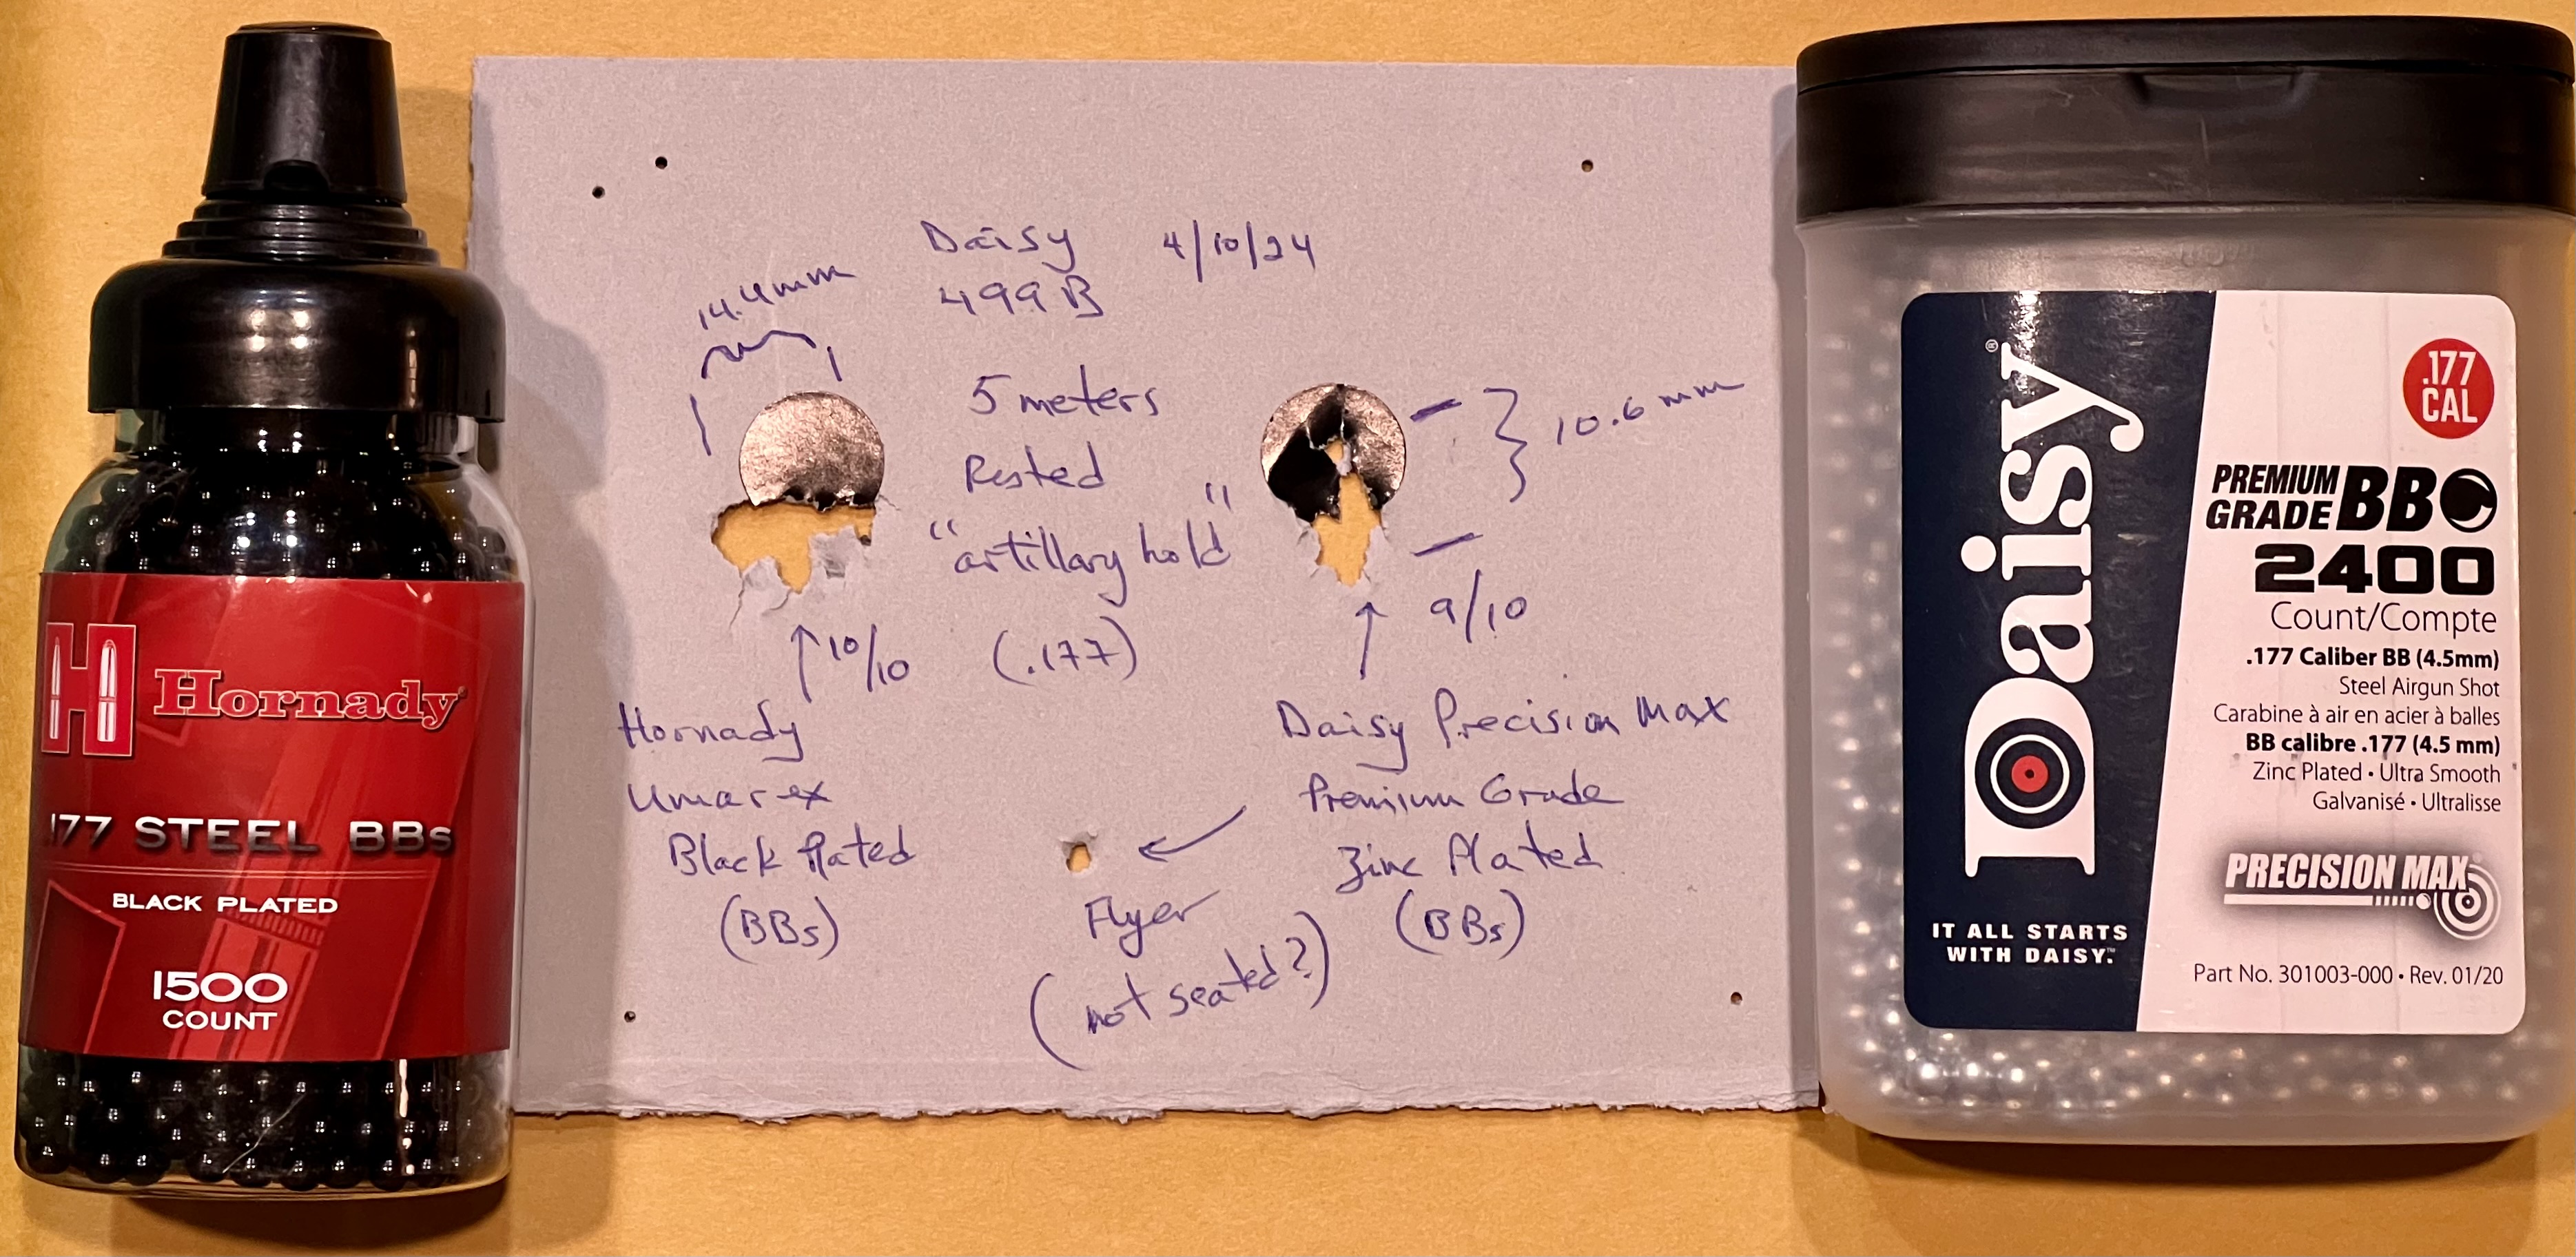 Hornady®
.177 STEEL BBs
BLACK PLATED
1500
COUNT
Daisy 4/10/24
499B
14.4mm
5 meters
Rested
"artillary hold"
(.177)
10.6 mm
10/10
9/10
Hornady
Umarex
Black Plated
(BBs)
Daisy Precision Max
Premium Grade
Zinc Plated
(BBs)
Flyer
(not seated?)
Daisy®
IT ALL STARTS
WITH DAISY.™
.177
CAL
PREMIUM
GRADE BB
2400
Count/Compte
.177 Caliber BB (4.5mm)
Steel Airgun Shot
Carabine à air en acier à balles
BB calibre .177 (4.5 mm)
Zinc Plated • Ultra Smooth
Galvanisé • Ultralisse
PRECISION MAX®
Part No. 301003-000 • Rev. 01/20